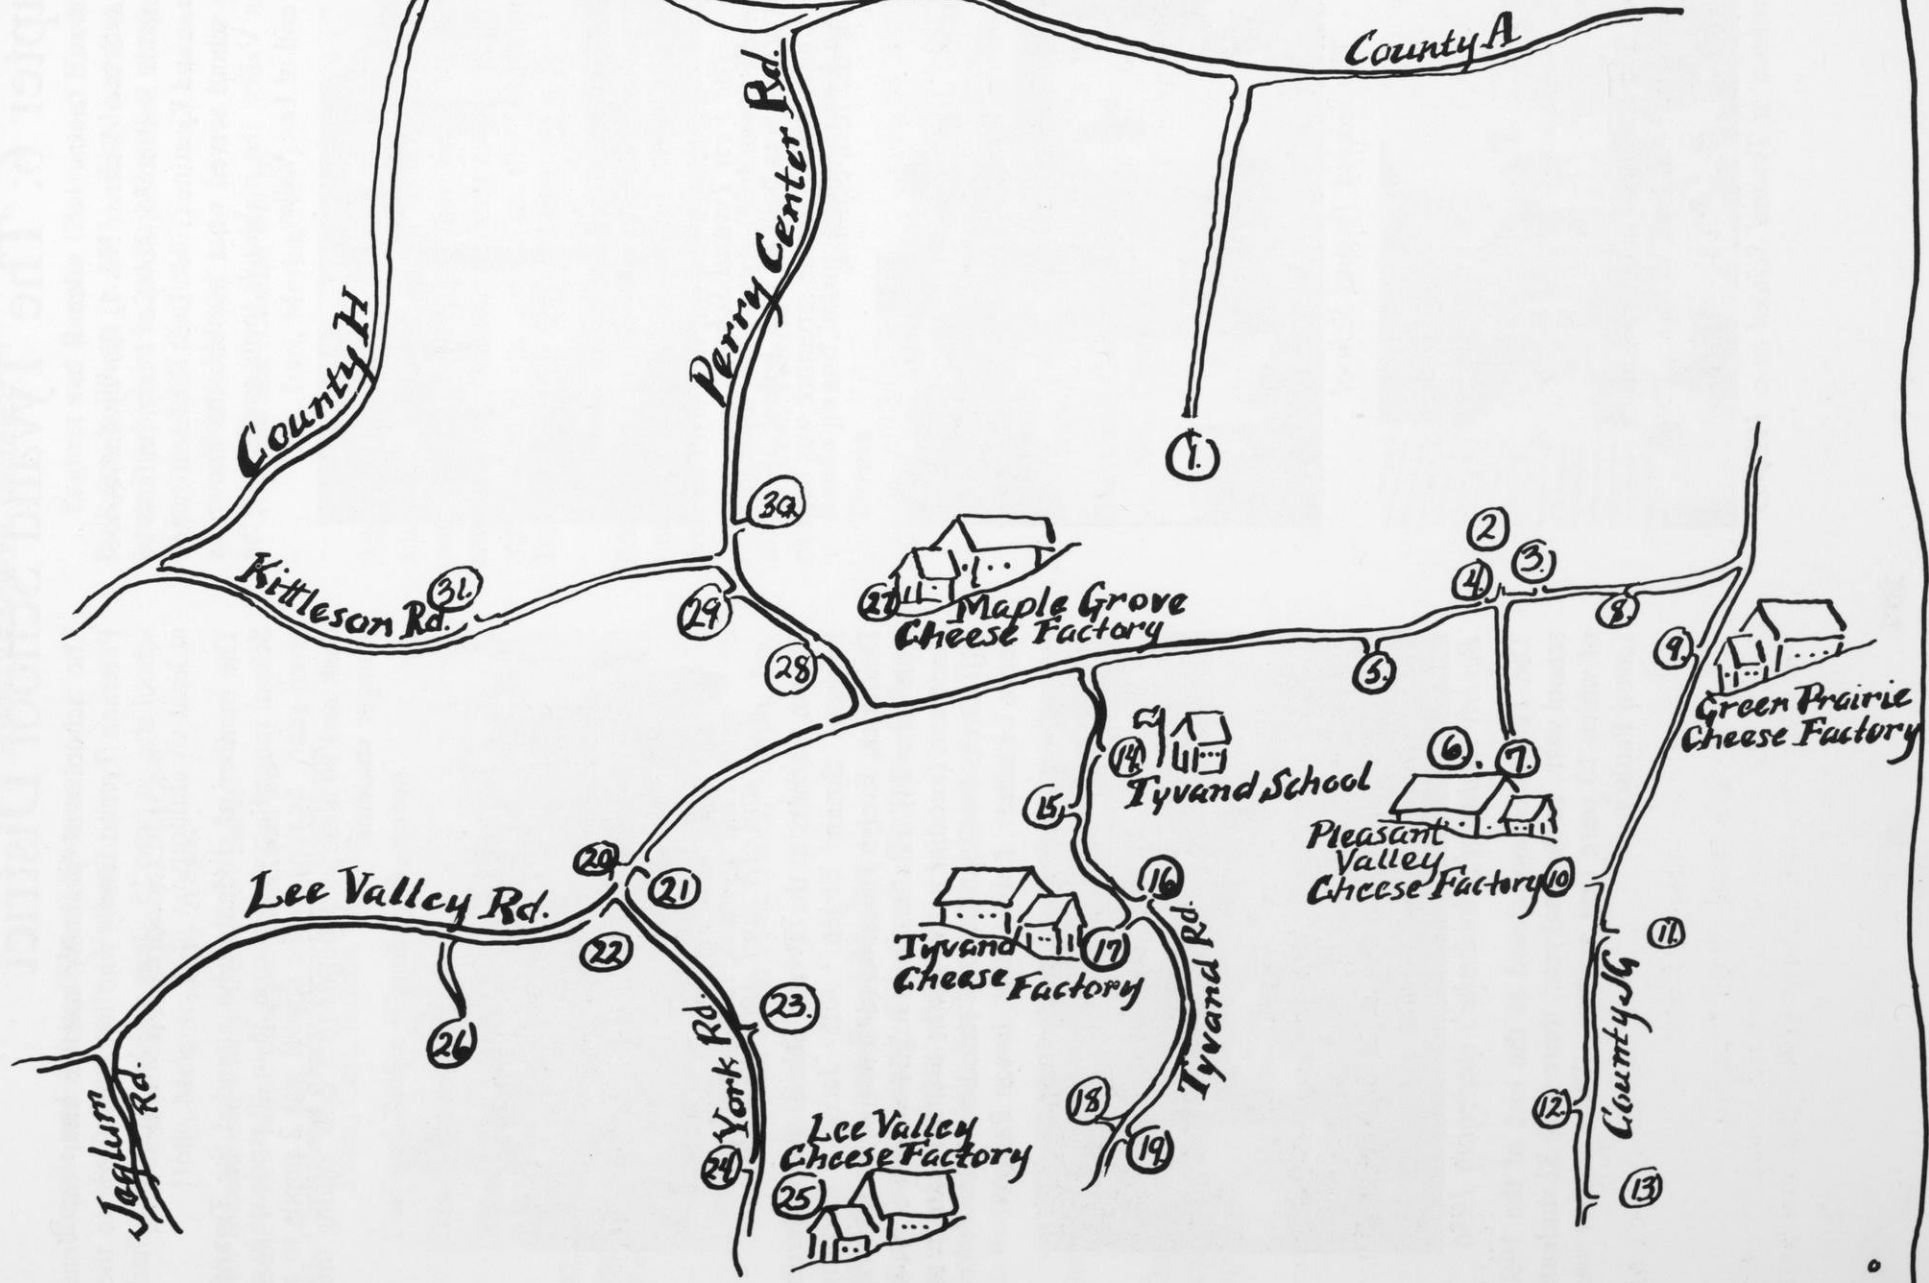 County A
Perry Center Rd.
County H
1.
30.
2
3.
4.
Kittleson Rd.
31.
29.
27
Maple Grove
Cheese Factory
8.
28
5.
9.
Green Prairie
Cheese Factory
14.
Tyvand School
6.
7.
15.
Pleasant
Valley
Cheese Factory
10
20
21
Lee Valley Rd.
16
22
Tyvand
Cheese
Factory
17
Tyvand Rd.
11.
23.
26
York Rd.
County JG
Jaglum
Rd.
18
12.
19.
Lee Valley
Cheese Factory
24
25
13.